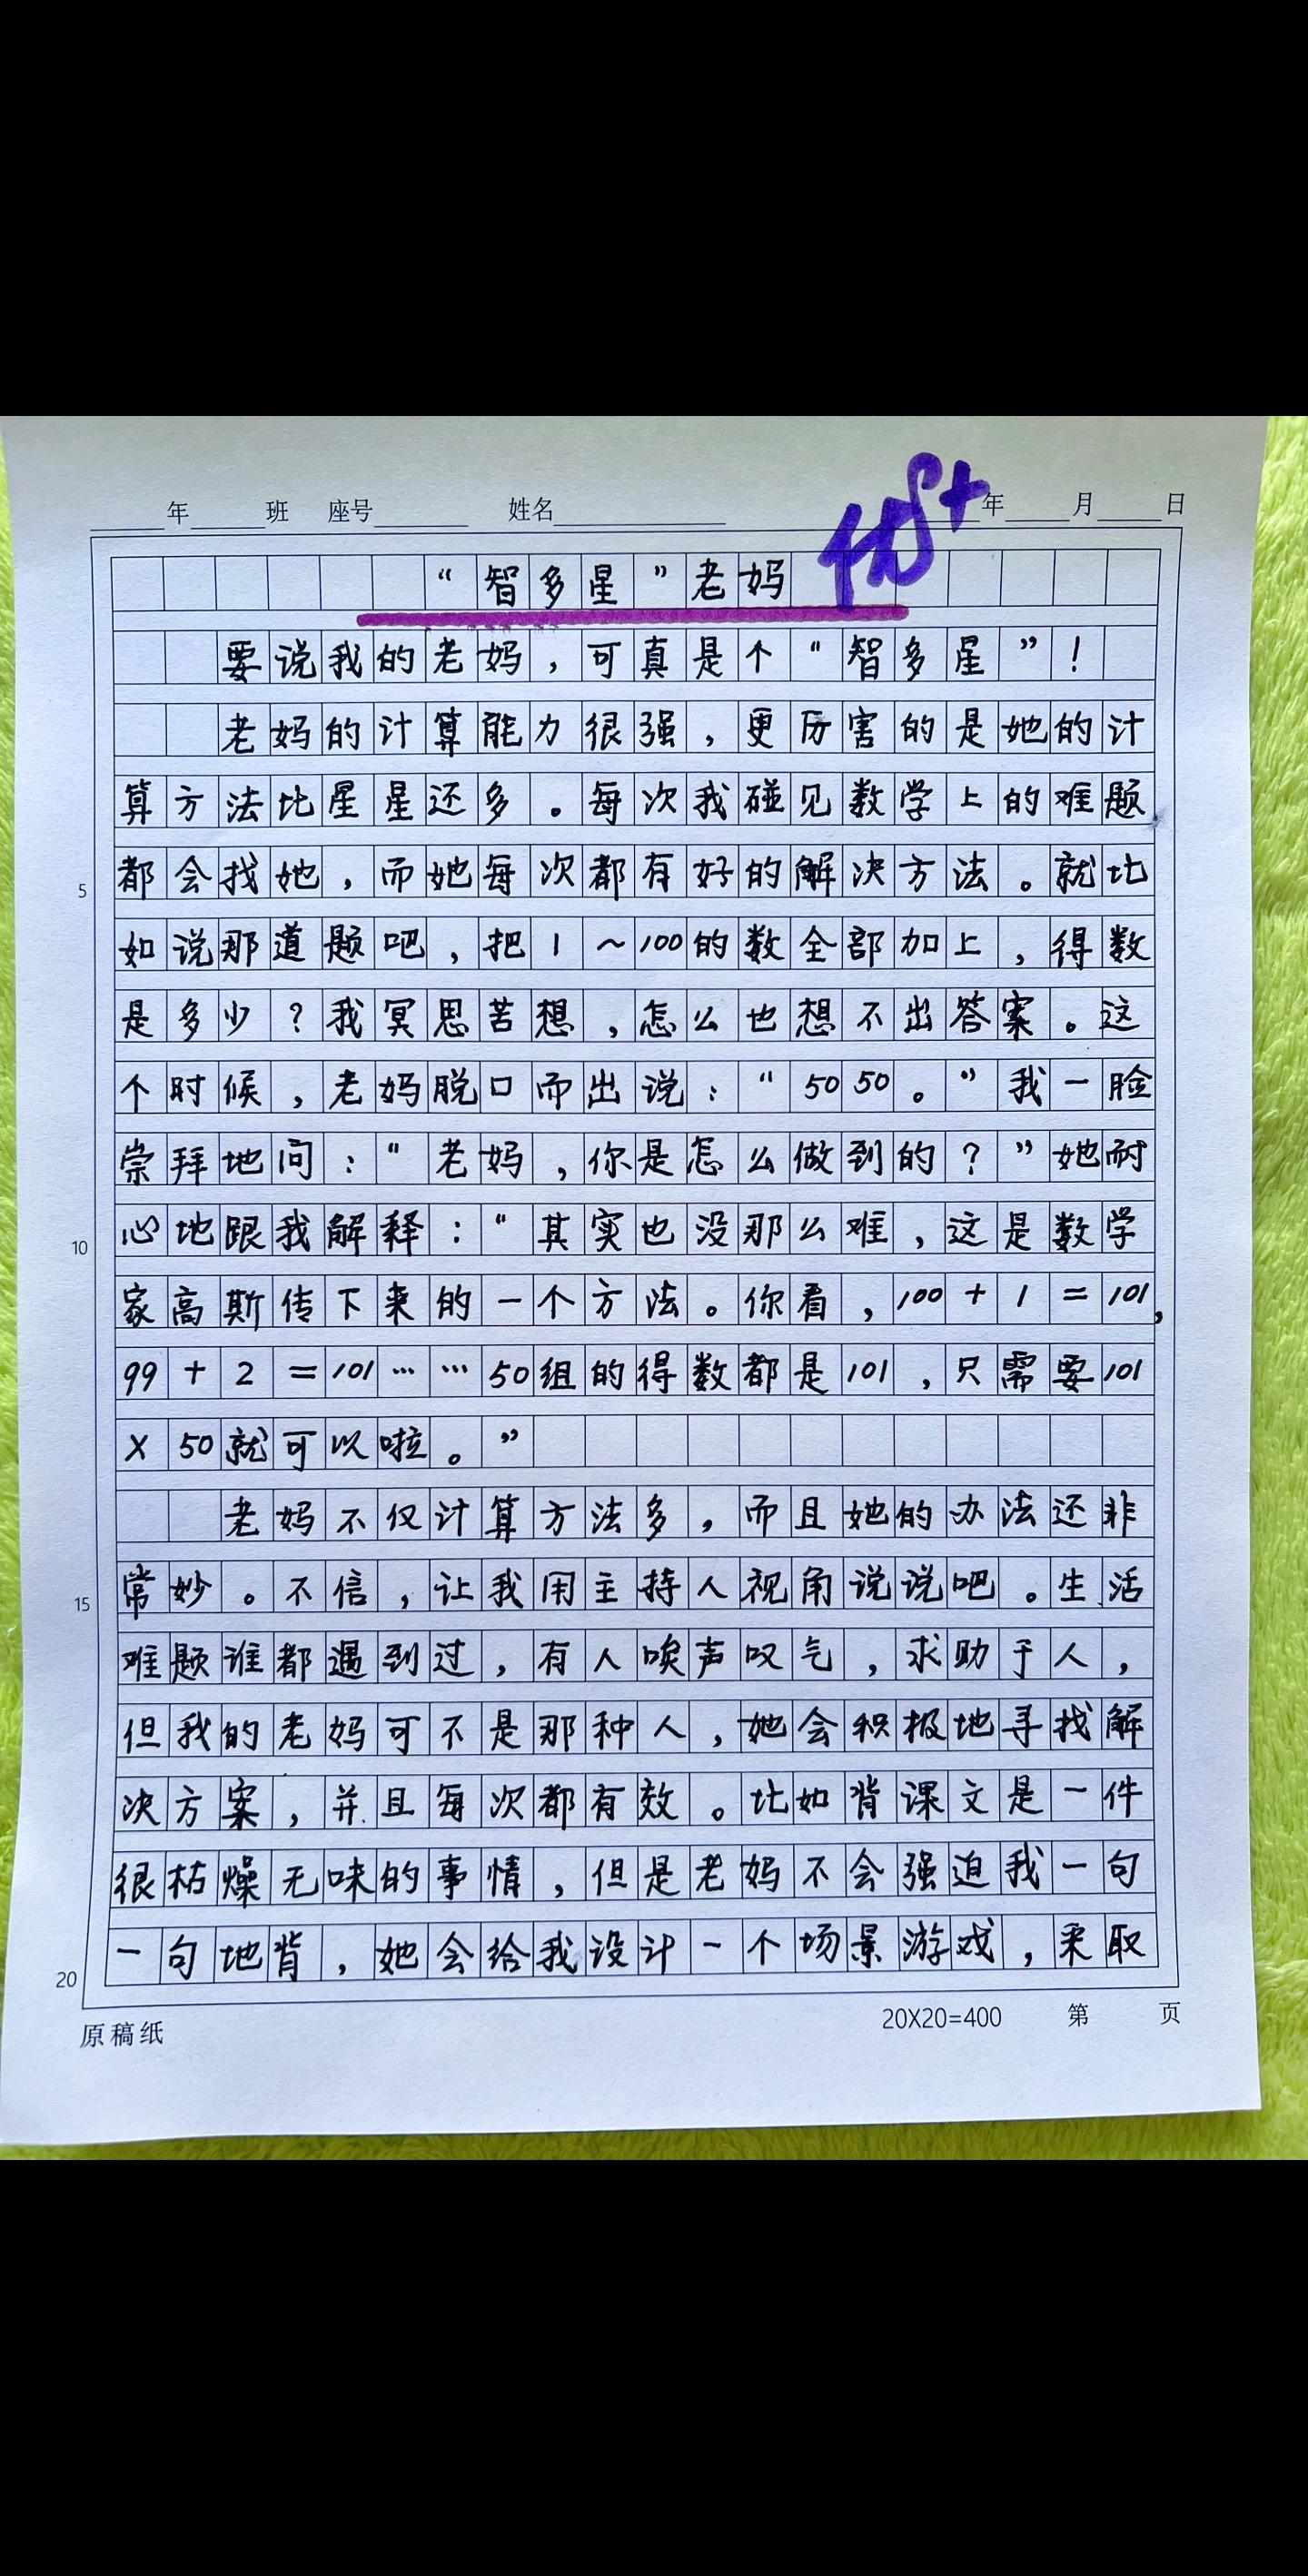 年 班 座号 姓名 年 月 日
优+
“智多星”老妈
要说我的老妈，可真是个“智多星”！
老妈的计算能力很强，更厉害的是她的计
算方法比星星还多。每次我碰见数学上的难题
都会找她，而她每次都有好的解决方法。就比
5
如说那道题吧，把1～100的数全部加上，得数
是多少？我冥思苦想，怎么也想不出答案。这
个时候，老妈脱口而出说：“5050。”我一脸
崇拜地问：“老妈，你是怎么做到的？”她耐
心地跟我解释：“其实也没那么难，这是数学
10
家高斯传下来的一个方法。你看，100+1=101，
99+2=101……50组的得数都是101，只需要101
×50就可以啦。”
老妈不仅计算方法多，而且她的办法还非
常妙。不信，让我用主持人视角说说吧。生活
15
难题谁都遇到过，有人唉声叹气，求助于人，
但我的老妈可不是那种人，她会积极地寻找解
决方案，并且每次都有效。比如背课文是一件
很枯燥无味的事情，但是老妈不会强迫我一句
一句地背，她会给我设计一个场景游戏，采取
20
原稿纸 20X20=400 第 页